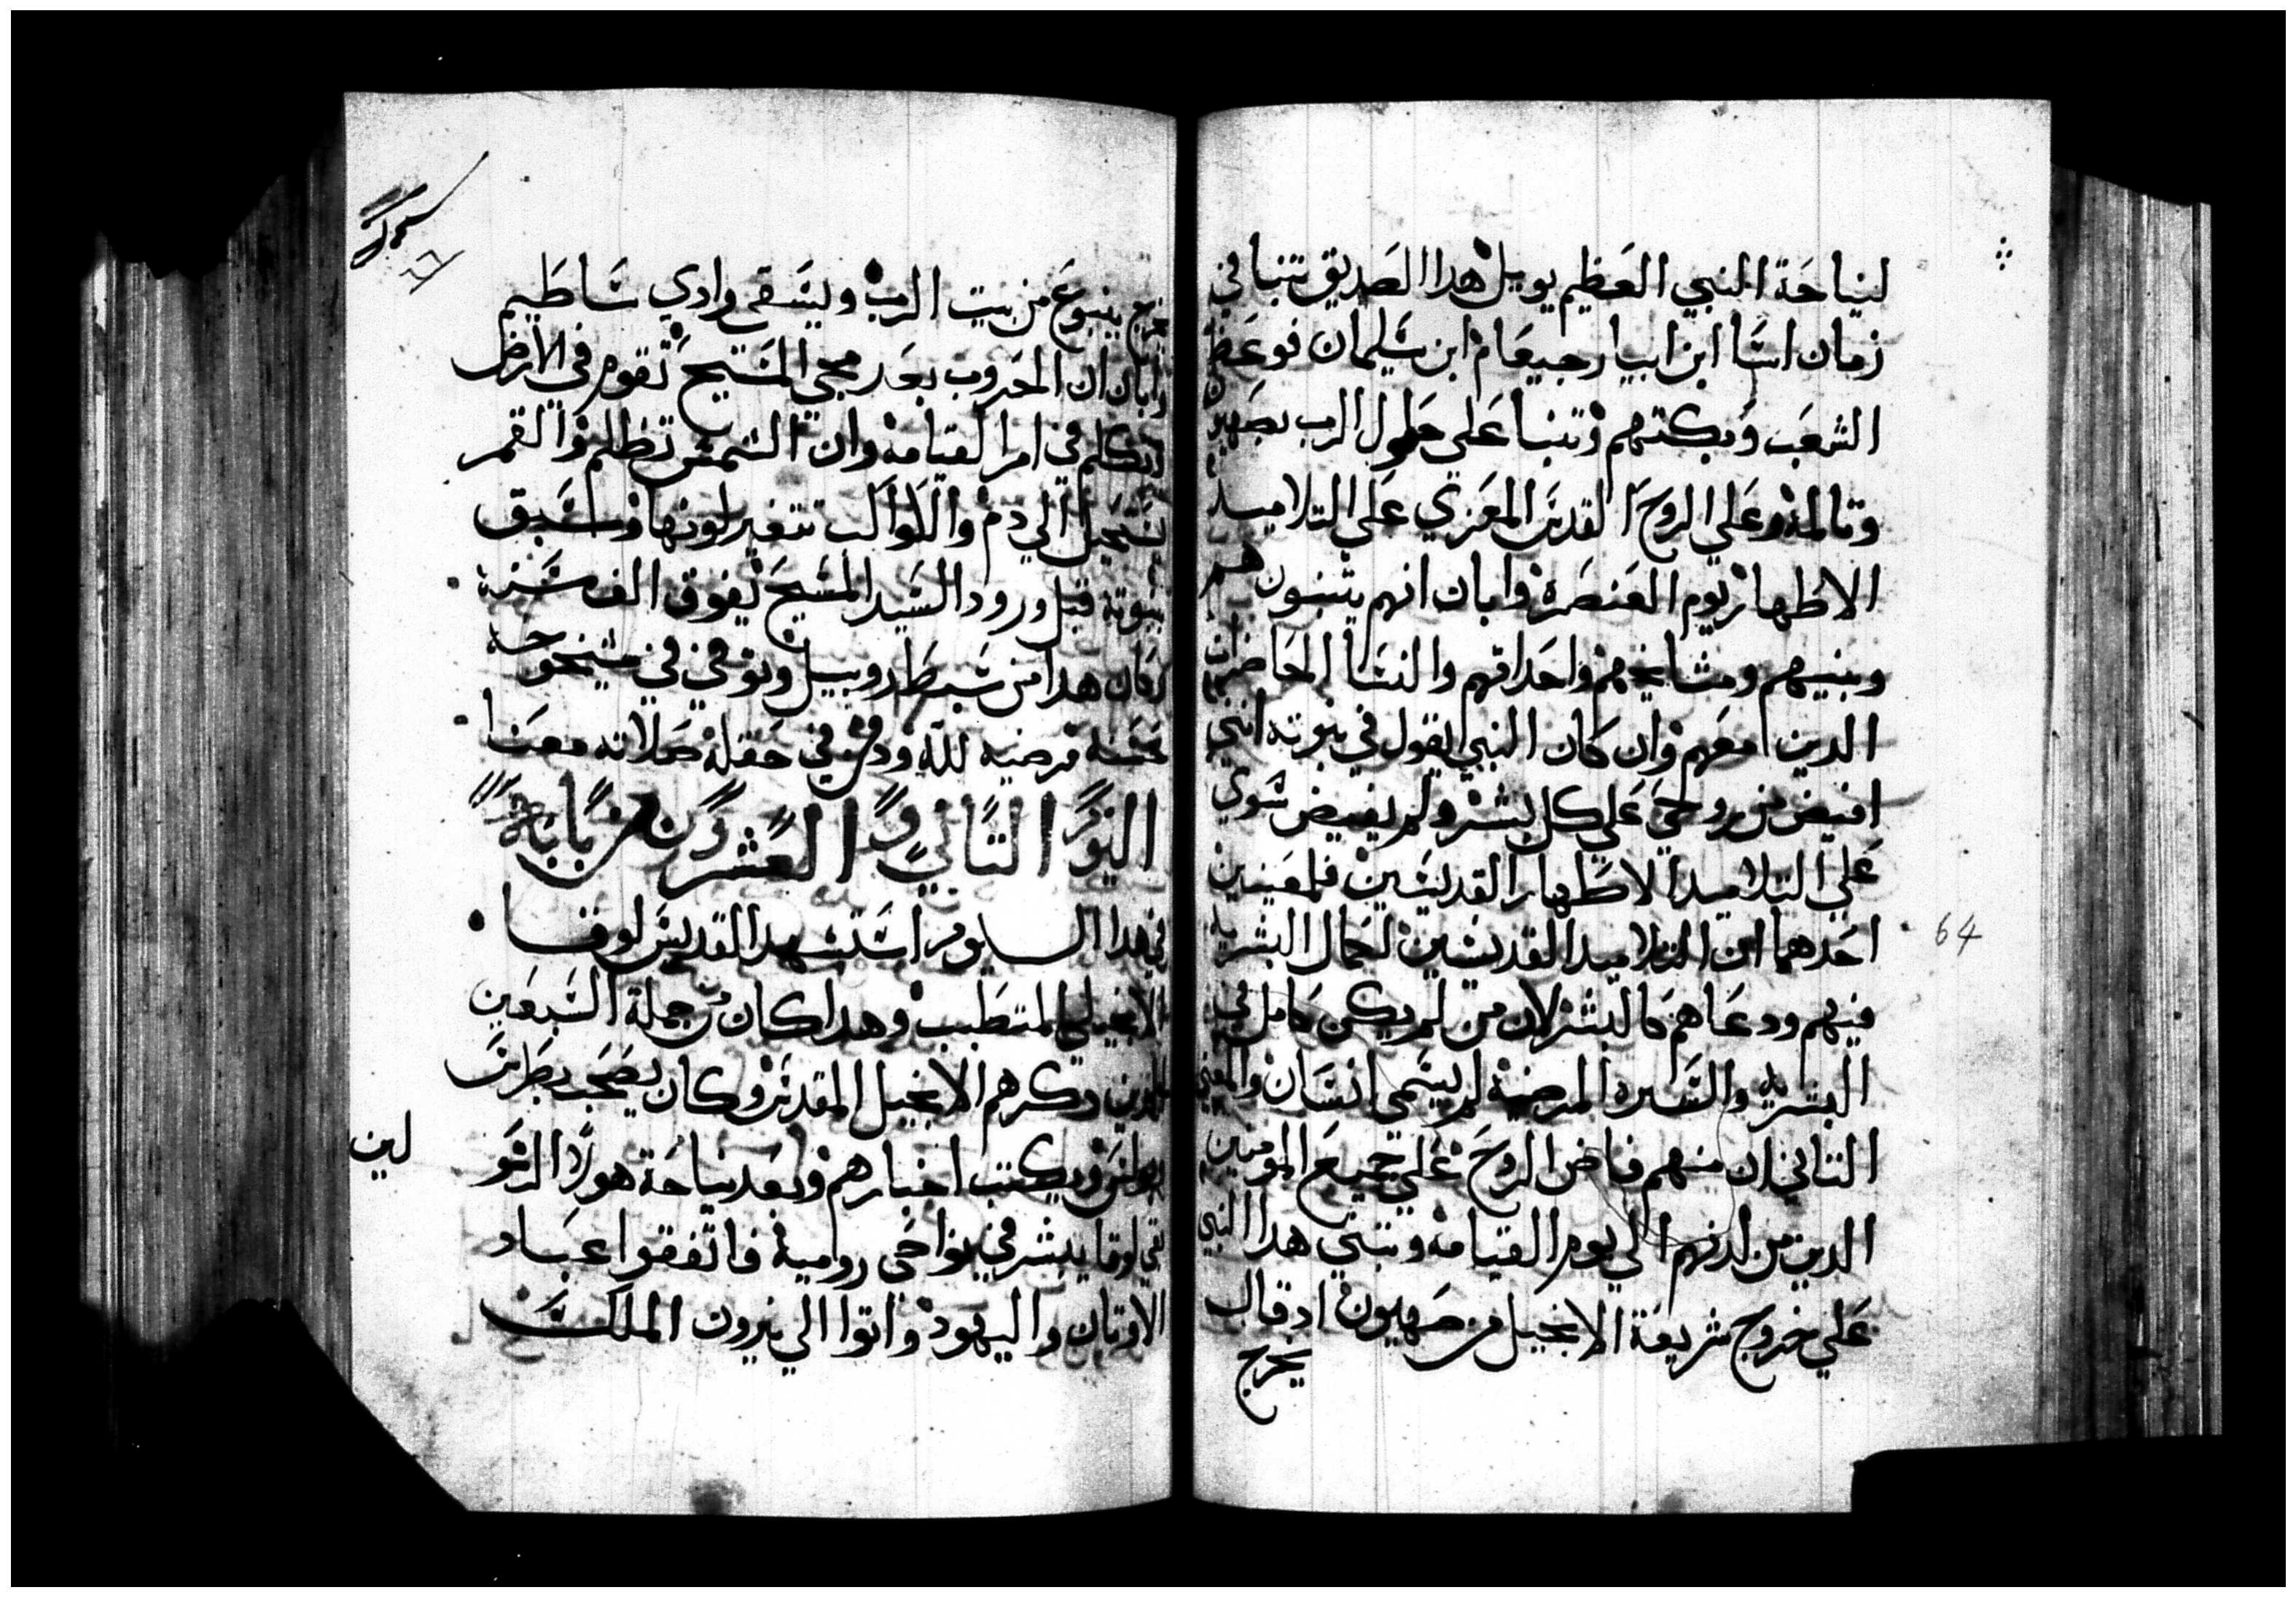 لنياحة النبي العظيم يوييل هدا الصديق تنبا في
زمان اسا ابن ابيا رحبعام ابن سليمان فوعظ
الشعب وبكتهم وتنبا على حلول الرب بصهيون
وتالمه وعلي الروح القدس المعزي على التلاميد
الاطهار يوم العنصرة وابان انهم يتنبون هم
وبنيهم ومشايخهم واحداتهم والنسا الحاضرات
الدين معهم وان كان النبي يقول في نبوته انني
افيض من روحي على كل بشر ولم يفيض سوي
على التلاميد الاطهار القديسين فلمعنيين
احدهما ان التلاميد القديسين لكمال البشرية
فيهم ودعاهم كالبشر لان من لم يكن كامل في
البشرية والسيرة المرضية لم يسمى انسان والمعني
التاني ان منهم فاض الروح على جميع المومنين
الدين من لدنهم الي يوم القيامه وتنبي هدا النبي
على خروج شريعة الانجيل من صهيون اد قال
يخرج
64
يخرج ينبوع من بيت الرب ويسقي وادي ساطيم
وابان ان الحروب بعد مجي المسيح تقوم في الارض
وتكلم في امر القيامه وان الشمس تظلم والقمر
يستحيل الي دم والكواكب تتغير لونها وسبق
بنبوته قبل ورود السيد المسيح بفوق الف سنة
وكان هدا من سبط روبيل وتوفي في شيخوخة
حسنة مرضيه لله ودفن في حقله صلاته معنا
اليوم التاني والعشرون من بابه
في هدا اليوم استشهد القديس لوقا
الانجيلي المتطبب وهدا كان من جملة السبعين
الدين دكرهم الانجيل المقدس وكان يصحب بطرس
وبولس ويكتب اخبارهم وبعد نياحة هولا الرسو
لين
بقي لوقا يبشر في نواحي رومية فاتفقوا عباد
الاوتان واليهود واتوا الي نيرون الملك